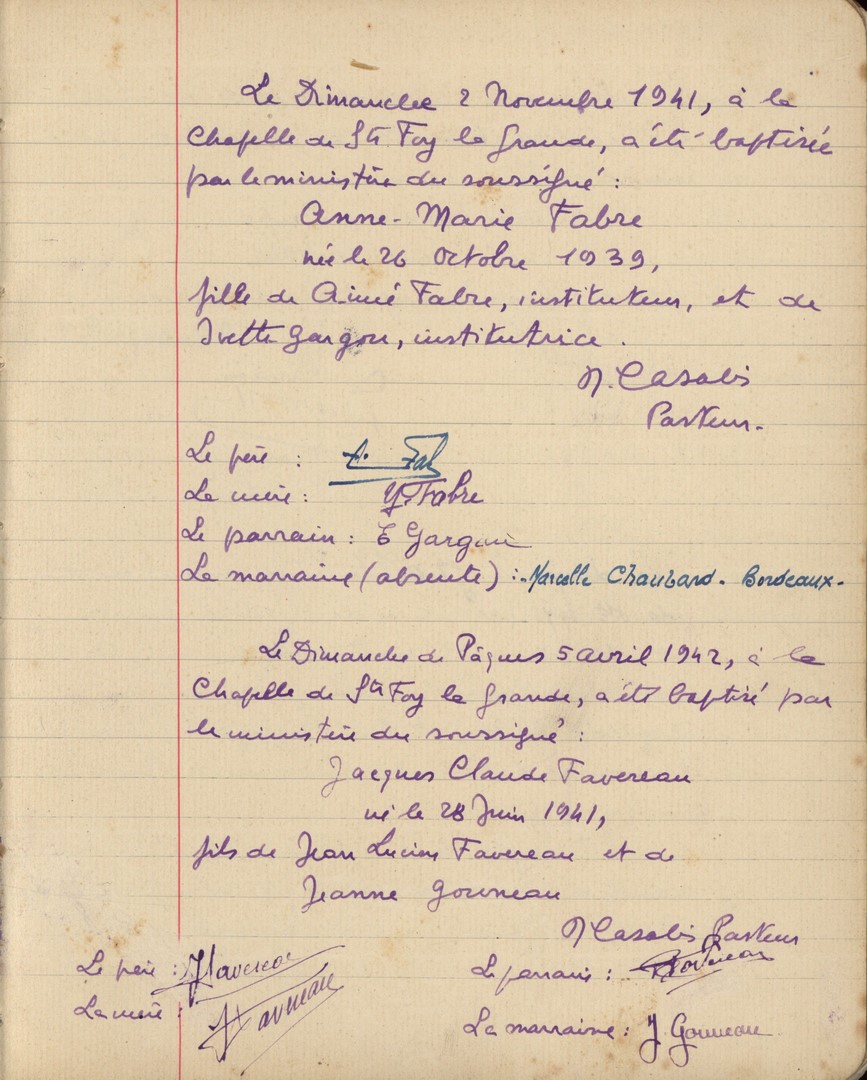 Le Dimanche 2 Novembre 1941, à la
Chapelle de Ste Foy la Grande, a été baptisée
par le ministère du soussigné :
Anne-Marie Fabre
née le 26 Octobre 1939,
fille de Aimé Fabre, instituteur, et de
Yvette Gargou, institutrice.
Casalis
Pasteur.
Le père : A. Fab
La mère : Y. Fabre
Le parrain : E Gargou
La marraine (absente) : Marcelle Chaubard. Bordeaux.
Le Dimanche de Pâques 5 avril 1942, à la
Chapelle de Ste Foy la Grande, a été baptisé par
le ministère du soussigné :
Jacques Claude Favereau
né le 28 Juin 1941,
fils de Jean Lucien Favereau et de
Jeanne Gouneau
Casalis Pasteur
Le père : J Favereau
La mère : J Favereau
Le parrain :
La marraine : J. Gouneau